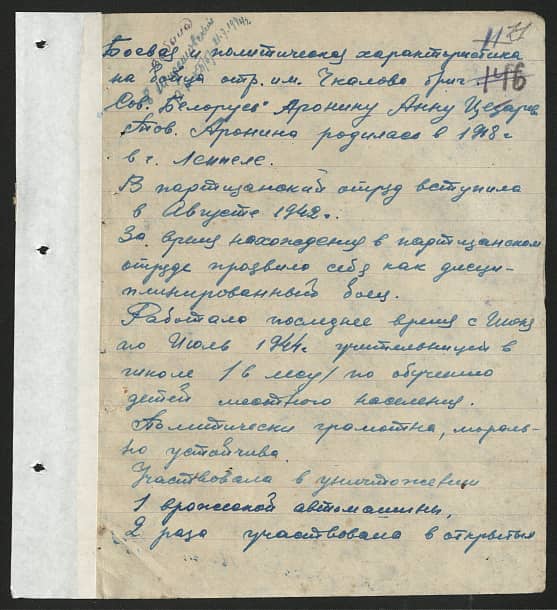 11 71
146
Боевая и политическая характеристика
на бойца отр. им. Чкалова бриг.
"Сов. Белорусь" Аронину Анну Цезарев.
Тов. Аронина родилась в 1918 г.
в г. Лепеле.
В партизанский отряд вступила
в Августе 1942 г.
За время нахождения в партизанском
отряде проявила себя как дисци-
плинированный боец.
Работала последнее время с Июня
по Июль 1944 г. учительницей в
школе /в лесу/ по обучению
детей местного населения.
Политически грамотна, мораль-
но устойчива.
Участвовала в уничтожении
1 вражеской автомашины,
2 раза участвовала в открытых